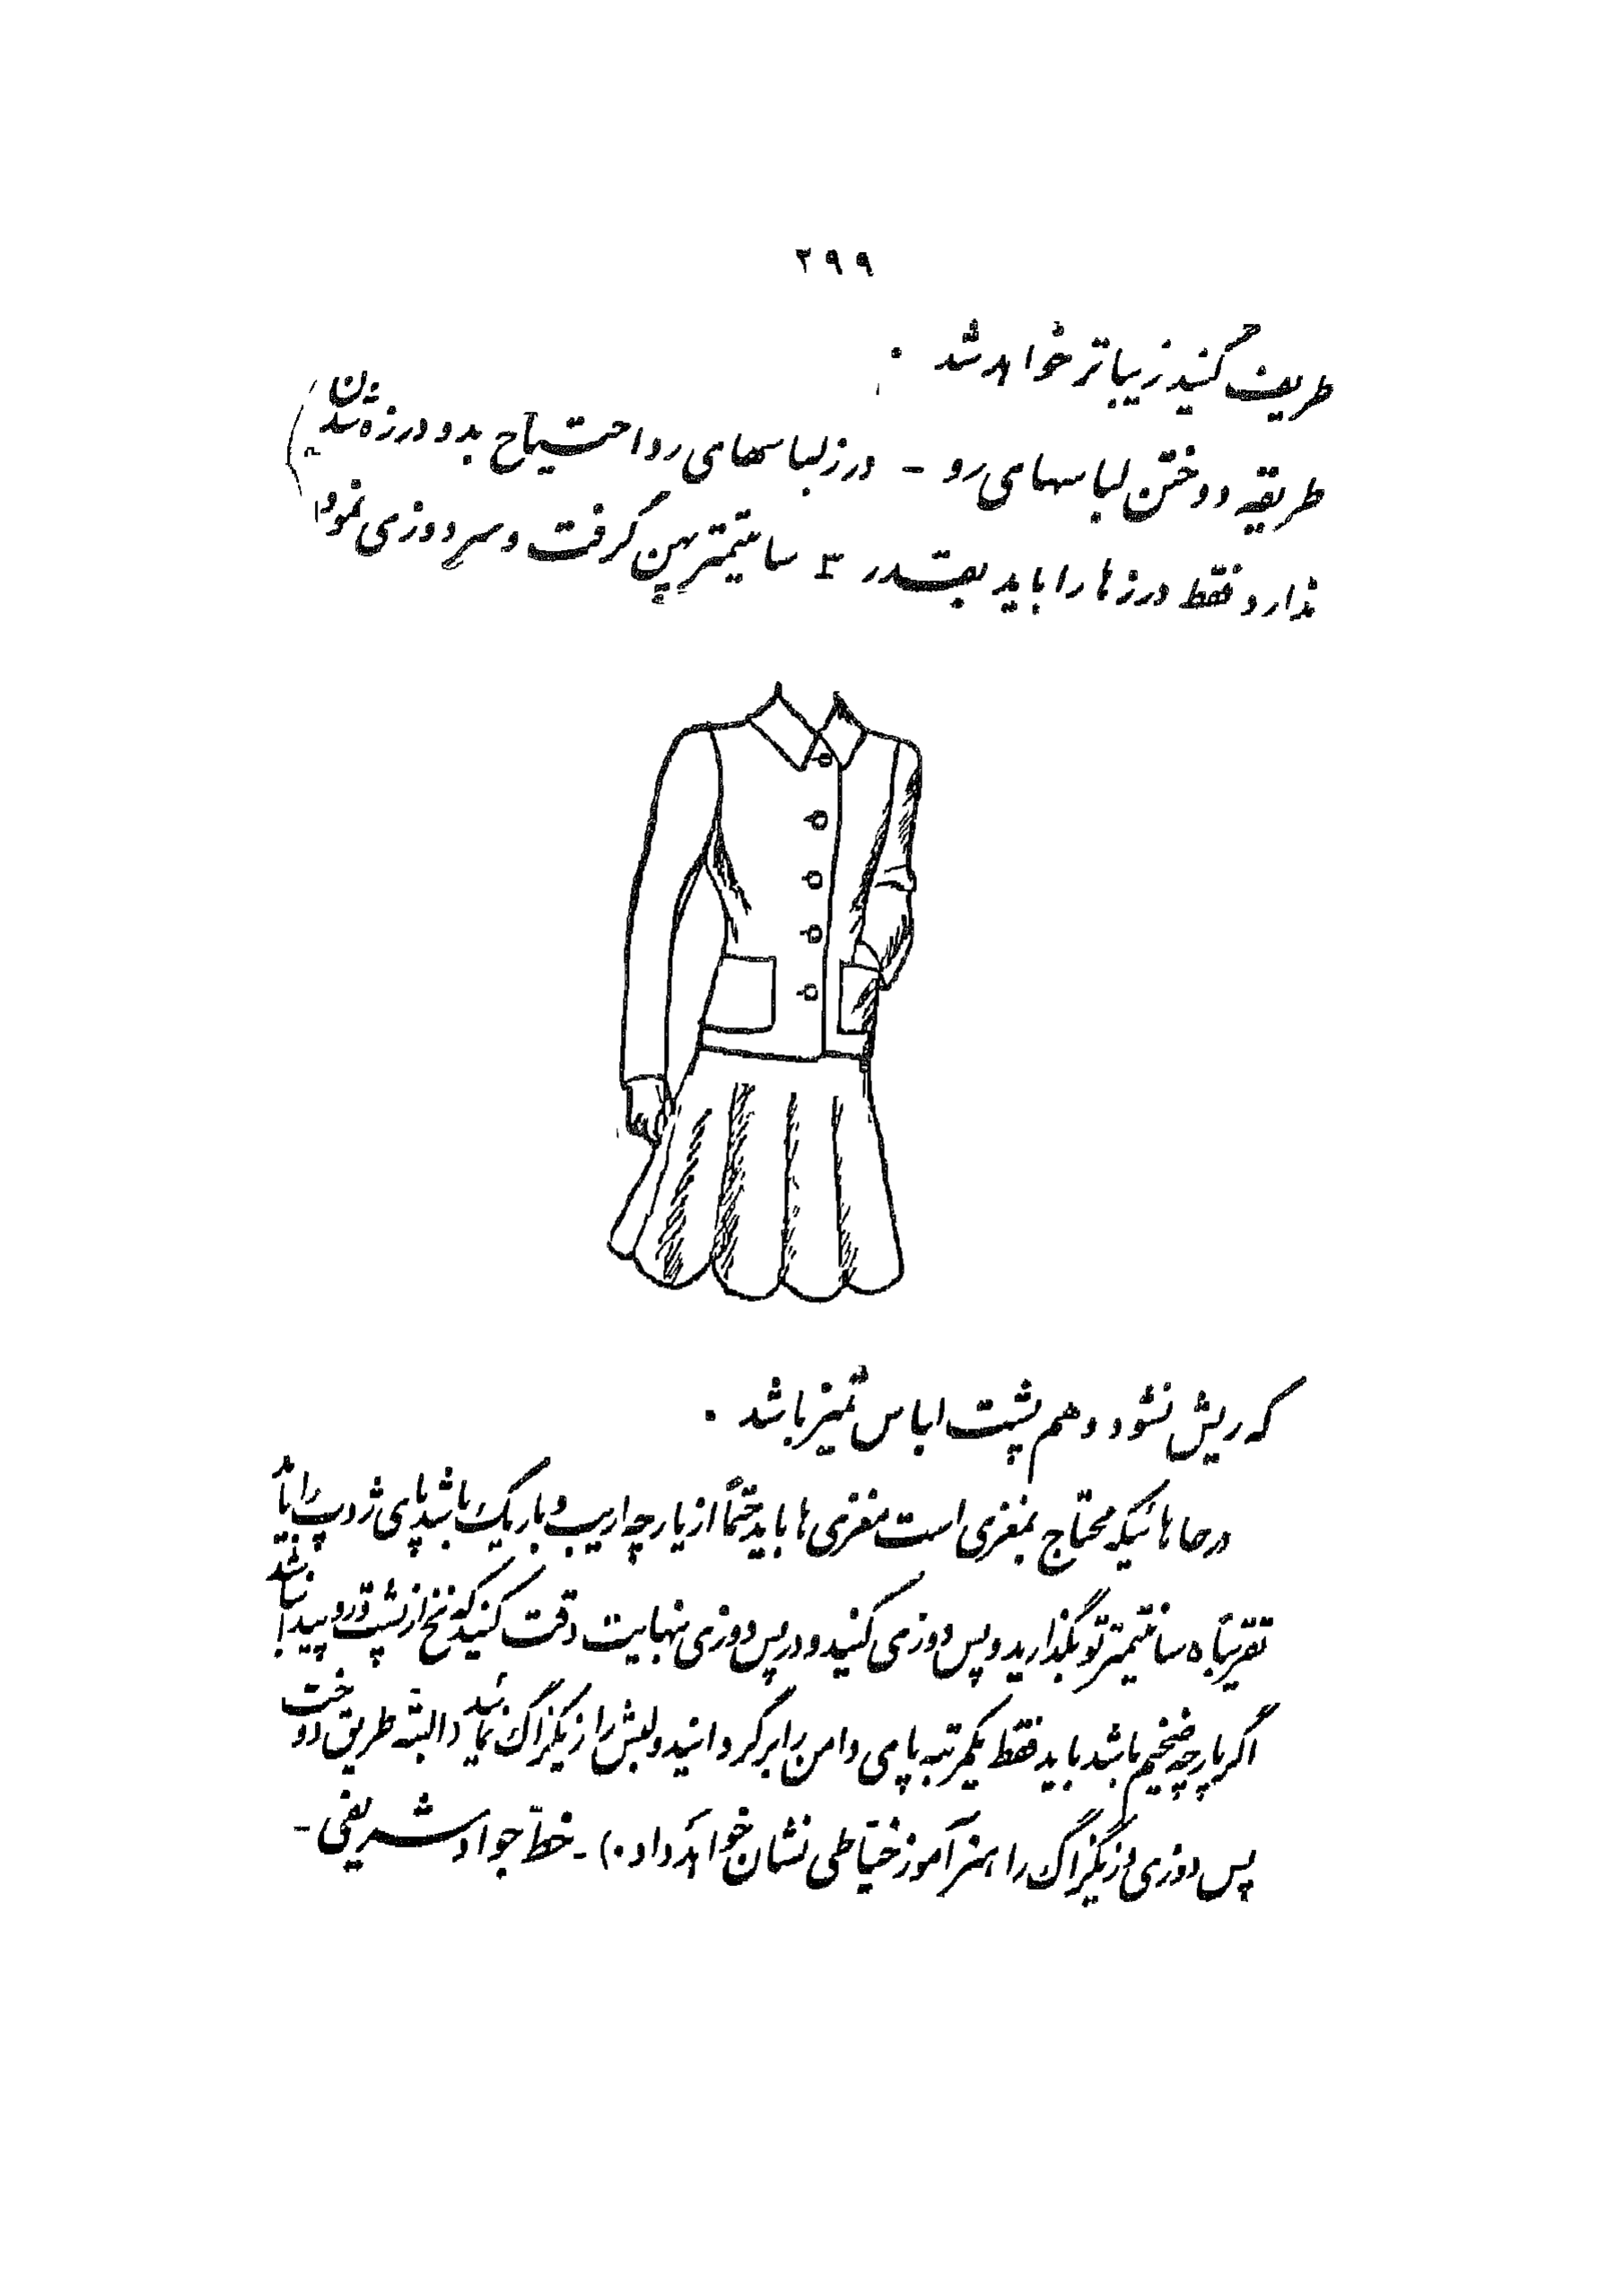 ۲۹۹
ظریف کنید زیباتر خواهد شد .
طریقه دوختن لباسهای رو - درز لباسهای رو احتیاج بدو درزه شدن
ندارد فقط درزها را باید بقدر ۳ سانتیمتر پهن گرفت و سردوزی نمود
که ریش نشود و هم پشت لباس تمیز باشد .
در جاهائیکه محتاج بمغزی است مغزی ها باید حتماً از پارچه اریب و باریک باشد پای ژوپ را باید
تقریباً ۵ سانتیمتر تو بگذارید و پس دوزی کنید و در پس دوزی نهایت دقت کنید که نخ از پشت در رو پیدا نباشد
اگر پارچه ضخیم باشد باید فقط یکمرتبه پای دامن را برگردانید و لبش را زیگزاگ نمائید (البته طریق دوخت
پس دوزی و زیگزاگ را هنرآموز خیاطی نشان خواهد داد.) - خطّ جواد شریفی -